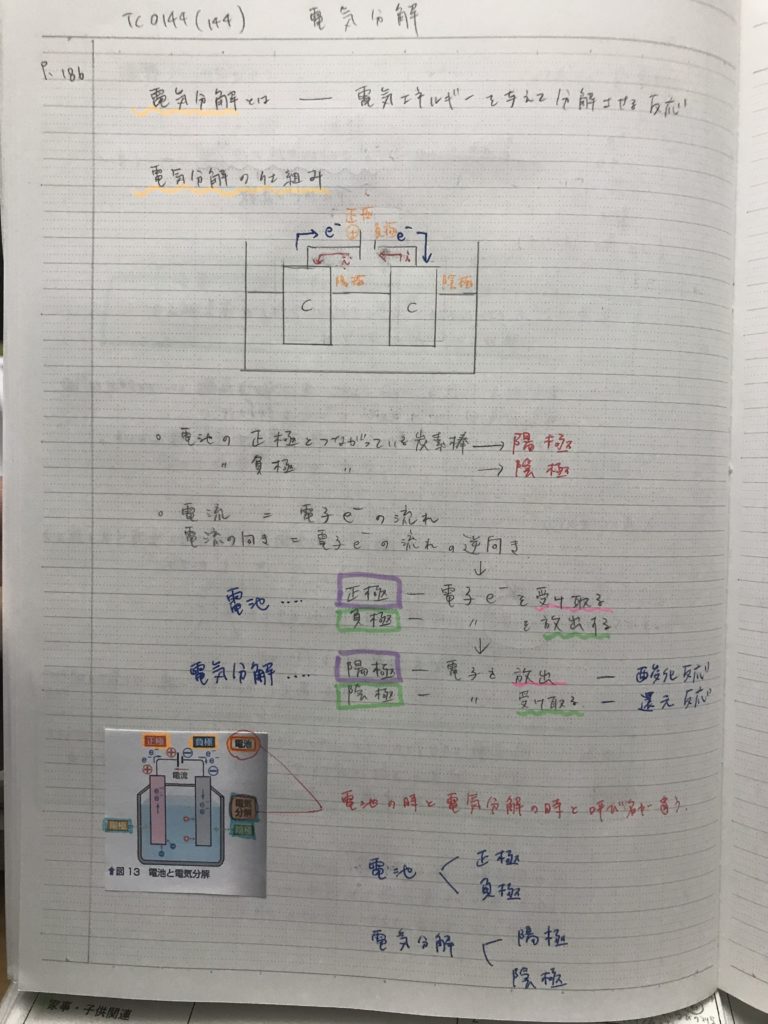 TC0144(144) 電気分解
P.186
電気分解とは — 電気エネルギーを与えて分解させる反応
電気分解の仕組み
正極 負極
e⁻ ⊕ e⁻
i i
陽極 陰極
C C
○ 電池の正極とつながっている炭素棒 → 陽極
〃 負極 〃 → 陰極
○ 電流 = 電子e⁻の流れ
電流の向き = 電子e⁻の流れの逆向き
↓
電池 …. 正極 — 電子e⁻を受け取る
負極 — 〃 を放出する
↓
電気分解 …. 陽極 — 電子を放出 — 酸化反応
陰極 — 〃 受け取る — 還元反応
正極 負極 電池
e⁻ ⊕ ⊖ e⁻
⊕ 電流 ⊖
電気分解
陽極 陰極
図13 電池と電気分解
電池の時と電気分解の時と呼び名が違う.
電池 正極
負極
電気分解 陽極
陰極
家事・子供関連